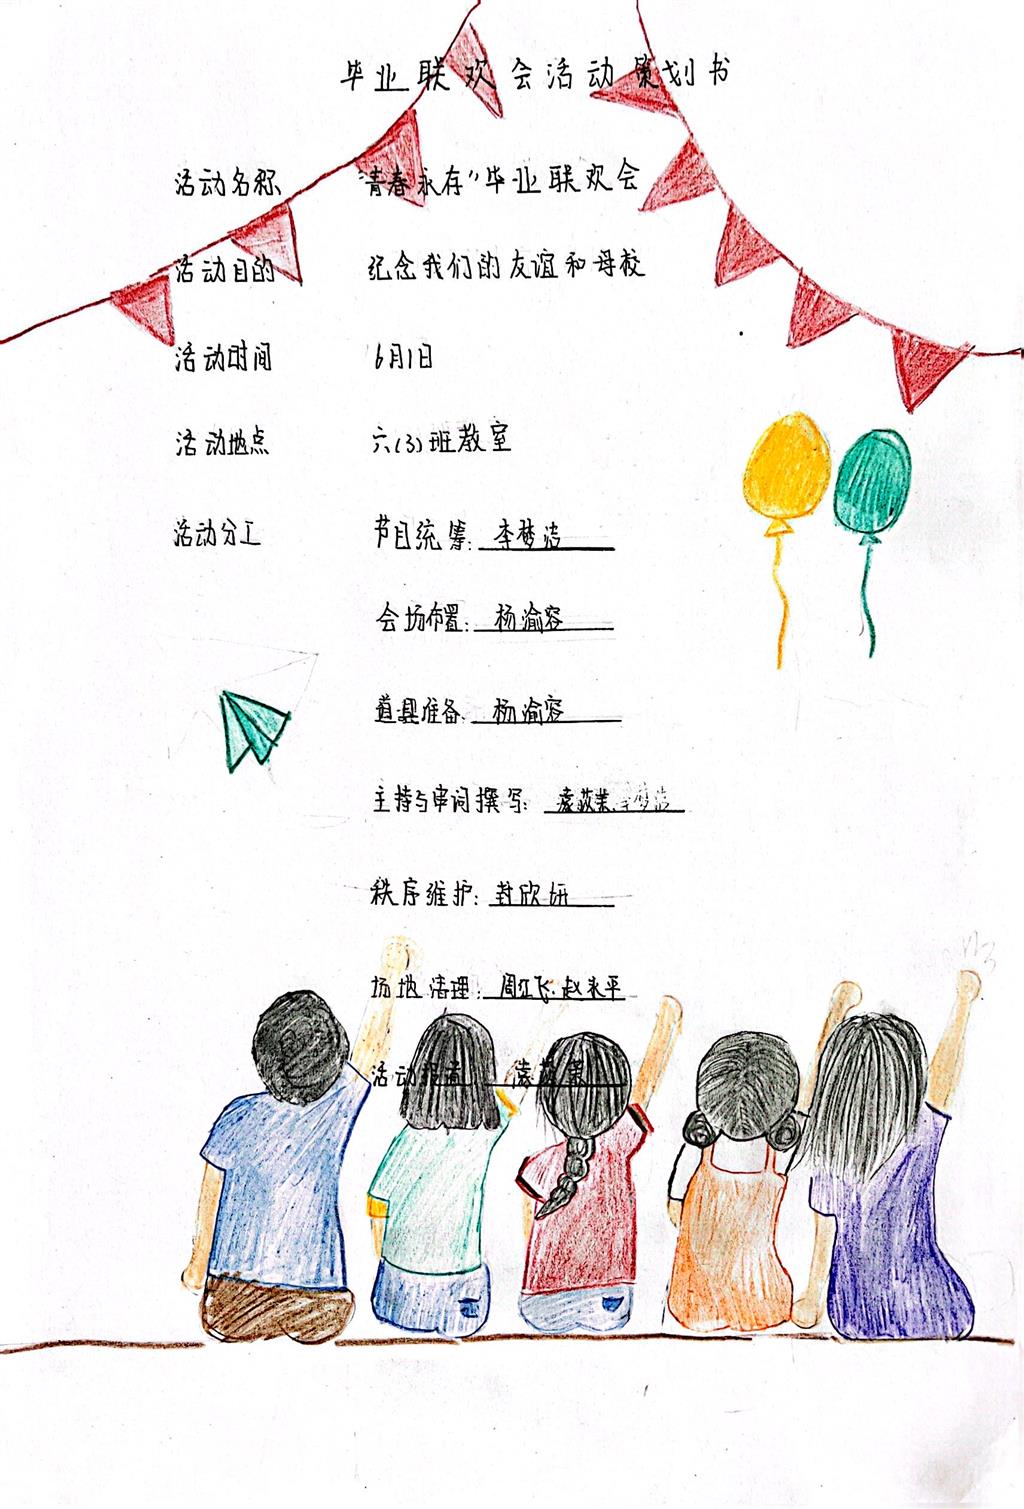 毕业联欢会活动策划书
活动名称 “青春永存”毕业联欢会
活动目的 纪念我们的友谊和母校
活动时间 6月1日
活动地点 六(3)班教室
活动分工 节目统筹:李梦洁
会场布置:杨渝容
道具准备:杨渝容
主持与串词撰写:李梦洁
秩序维护:封欣妍
场地清理:周江飞.赵来平
活动报道